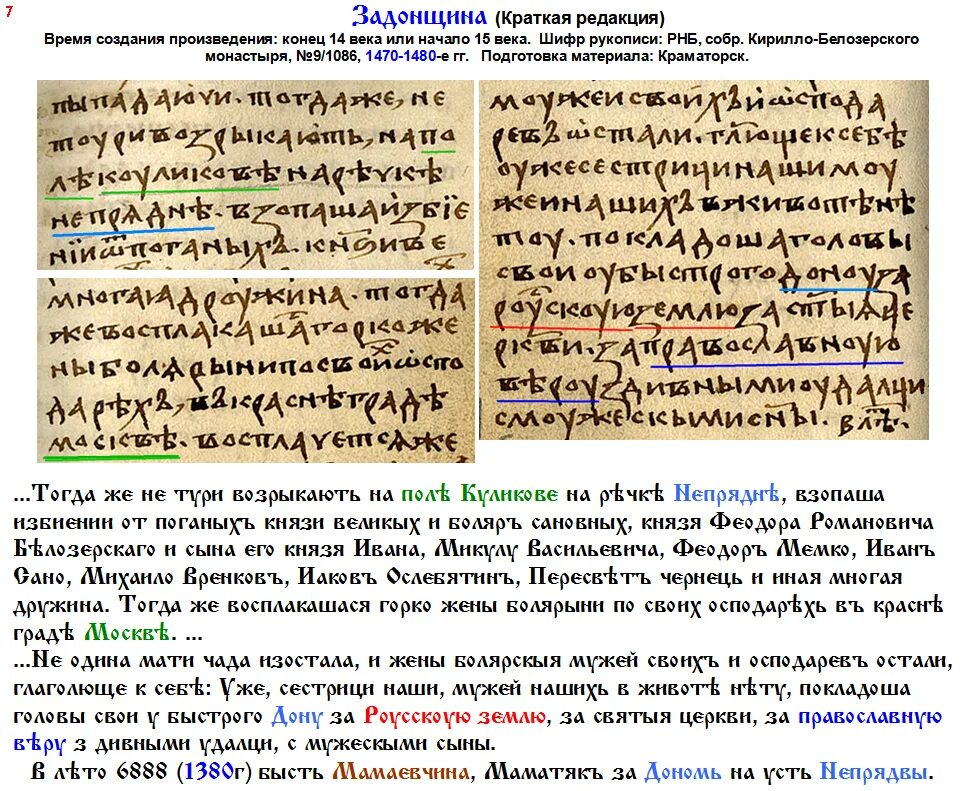 7
Задонщина (Краткая редакция)
Время создания произведения: конец 14 века или начало 15 века. Шифр рукописи: РНБ, собр. Кирилло-Белозерского
монастыря, №9/1086, 1470-1480-е гг. Подготовка материала: Краматорск.
тогдаже, не
тоуривозрыкають, напо
лѣкоуликовѣнарѣчкѣ
непряднѣ. взопашаизбїе
нїиѿпоганыхъ.
многаıадроужина. тогда
жевосплакашагоркоже
ныболярынипосвоиѿспо
дарѣхъ, въкраснѣградѣ
москвѣ. восплачетсяже
моужеисвоихъиѿспода
ревъѿстали. глющексебѣ
оужесестрицинашимоу
жеинашихъвживотѣнѣ
тоу. покладошаголовы
своиоубыстрогодоноуза
роускоуюземлюзастыяце
ркви. заправославноую
вѣроуздивнымиоудалци
смоужескымисны. влѣ.
...Тогда же не тури возрыкають на полѣ Куликове на рѣчкѣ Непряднѣ, взопаша
избиении от поганыхъ князи великых и боляръ сановных, князя Феодора Романовича
Бѣлозерскаго и сына его князя Ивана, Микулу Васильевича, Феодоръ Мемко, Иванъ
Сано, Михаило Вренковъ, Иаковъ Ослебятинъ, Пересвѣтъ чернець и иная многая
дружина. Тогда же восплакашася горко жены болярыни по своих осподарѣхь въ краснѣ
градѣ Москвѣ. ...
...Не одина мати чада изостала, и жены болярскыя мужей своихъ и осподаревъ остали,
глаголюще к себѣ: Уже, сестрици наши, мужей нашихь в животѣ нѣту, покладоша
головы свои у быстрого Дону за Роусскоую землю, за святыя церкви, за православную
вѣру з дивными удалци, с мужескыми сыны.
В лѣто 6888 (1380г) бысть Мамаевчина, Маматякъ за Дономь на усть Непрядвы.